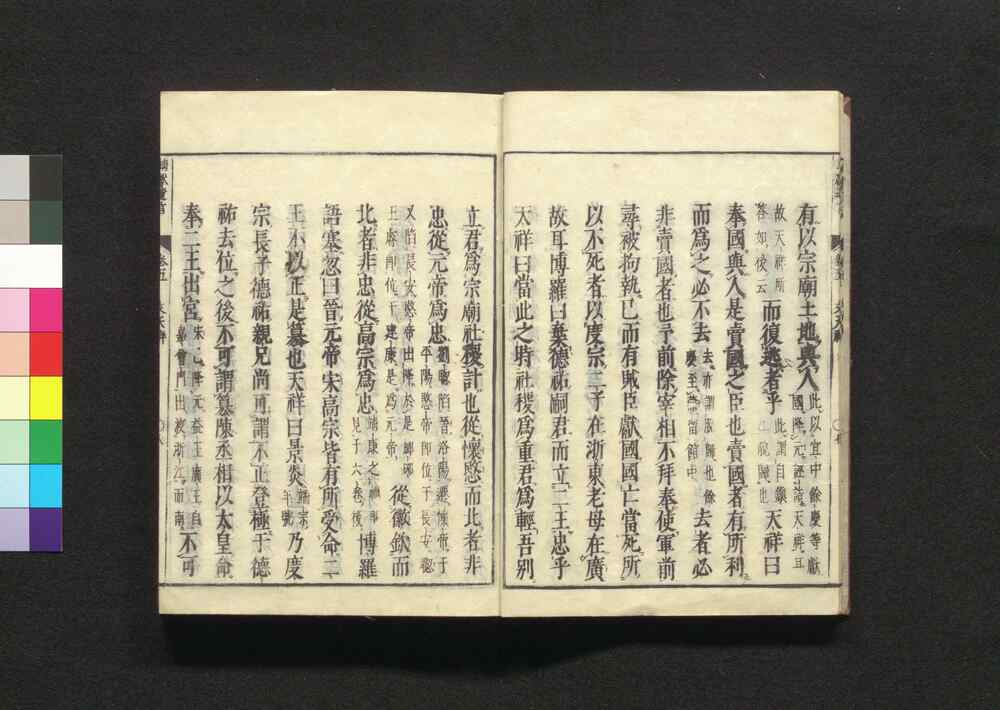 有以宗廟土地與人此以宜中餘慶等獻
國降元誣詰天祥耳
故天祥所
答如後云而復逃者乎天祥曰
奉國與人是賣國之臣也賣國者有所利
而爲之必不去去者必
非賣國者也予前除宰相不拜奉使軍前
尋被拘執已而有賊臣獻國國亡當死所
以不死者以度宗二子在浙東老母在廣
故耳博羅曰棄德祐嗣君而立二王忠乎
天祥曰當此之時社稷爲重君爲輕吾別
立君爲宗廟社稷計也從懷愍而北者非
忠從元帝爲忠劉聰陷晉洛陽遷懷帝于
平陽愍帝即位于長安聰
又陷長安愍帝出降於是
王睿即位于建康是爲元帝從徽欽而
北者非忠從高宗爲忠博羅
語塞忽曰晉元帝宋高宗皆有所受命二
王不以正是篡也天祥曰景炎乃度
宗長子德祐親兄尚可謂不正登極于德
祐去位之後不可謂篡陳丞相以太皇命
奉二王出宮不可
卷五